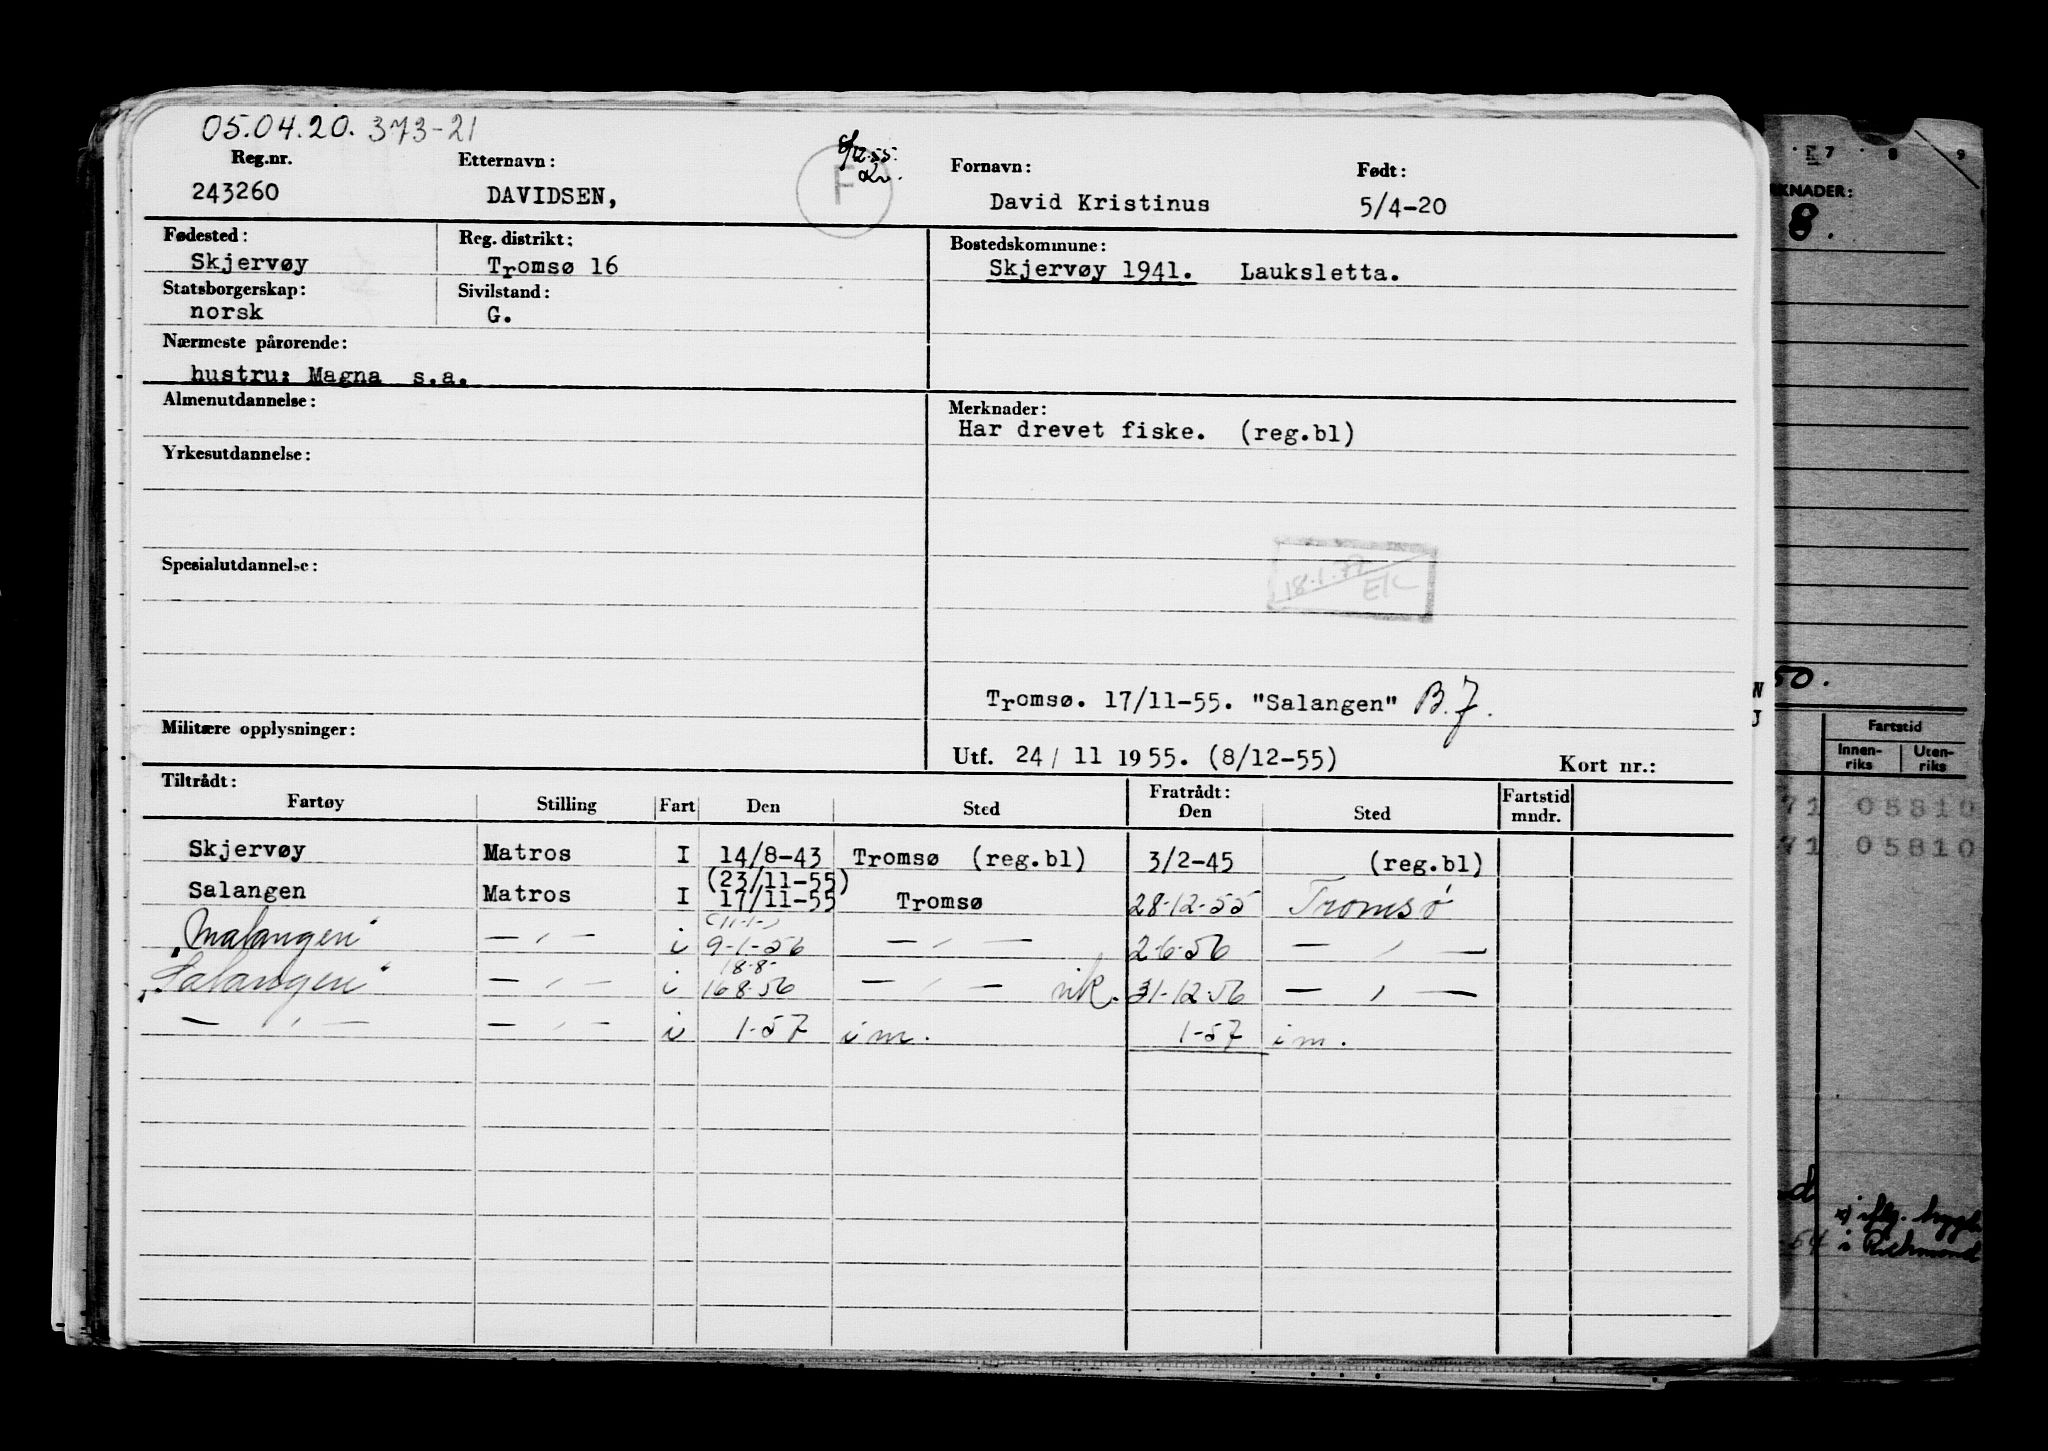 05.04.20. 373-21
Reg.nr. Etternavn: 8/12-55. Fornavn: Født:
243260 DAVIDSEN, F David Kristinus 5/4-20
Fødested: Reg. distrikt: Bostedskommune:
Skjervøy Tromsø 16 Skjervøy 1941. Lauksletta.
Statsborgerskap: Sivilstand:
norsk G.
Nærmeste pårørende:
hustru: Magna s.a.
Almenutdannelse: Merknader:
Har drevet fiske. (reg.bl)
Yrkesutdannelse:
Spesialutdannelse:
18.1.72
EK
Tromsø. 17/11-55. "Salangen" B.J.
Militære opplysninger:
Utf. 24/ 11 1955. (8/12-55) Kort nr.:
Tiltrådt: Fratrådt:
Fartøy Stilling Fart Den Sted Den Sted Fartstid mndr.
Skjervøy Matros I 14/8-43 Tromsø (reg.bl) 3/2-45 (reg.bl)
(23/11-55)
Salangen Matros I 17/11-55 Tromsø 28-12-55 Tromsø
(11-1-)
"Malangen" — " — i 9-1-56 — " — 2-6-56 — " —
18-8-
"Salangen" — " — i 16-8-56 — " — vik. 31-12-56 — " —
— " — — " — i 1-57 i m. 1-57 i m.
7 8 9
KNADER:
8.
50.
Fartstid
Innen-riks Uten-riks
71 05810
71 05810
i Richmond